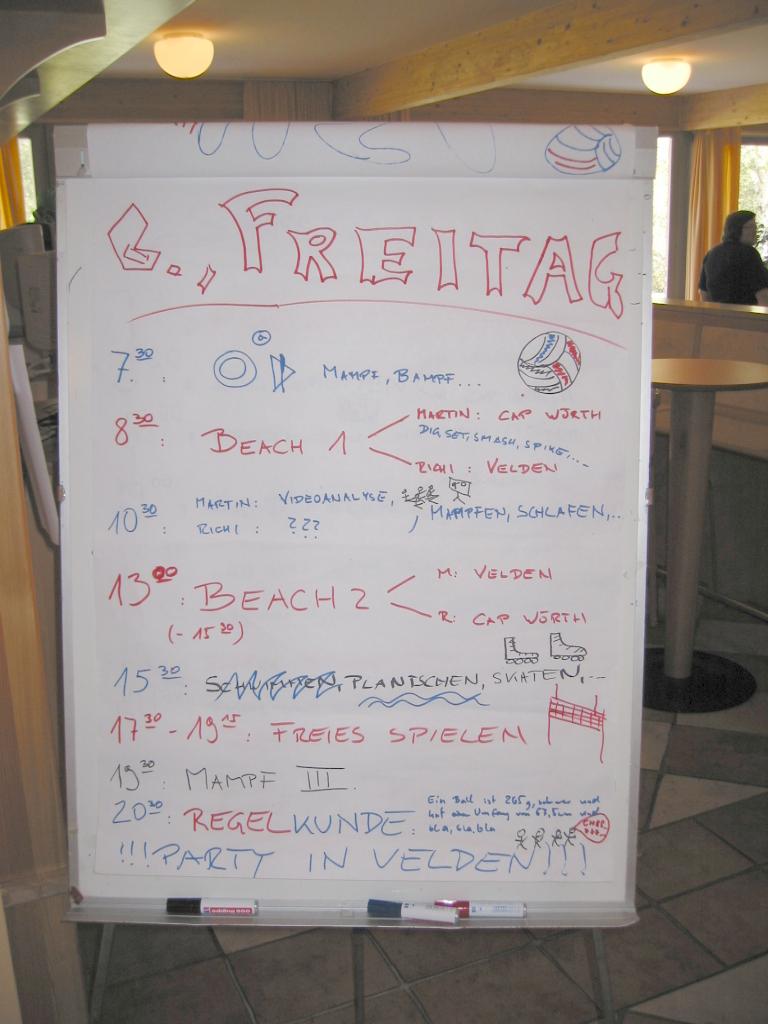 6., FREITAG
7.30 : MAMPF, BAMPF...
8 30 : BEACH 1
MARTIN: CAP WÖRTH
DIG, SET, SMASH, SPIKE,...
RICHI: VELDEN
10 30 MARTIN: VIDEOANALYSE,
RICHI: ???
, MAMPFEN, SCHLAFEN,..
13 00 : BEACH 2
(- 15 30)
M: VELDEN
R: CAP WÖRTH
15 30 : PLANTSCHEN, SKATEN,...
17 30 - 19 15 : FREIES SPIELEN
19 30 : MAMPF III.
20 30 : REGELKUNDE:
Ein Ball ist 265g, schwer und
hat einen Umfang von 67,5cm und
bla, bla, bla
!!!PARTY IN VELDEN!!!
edding